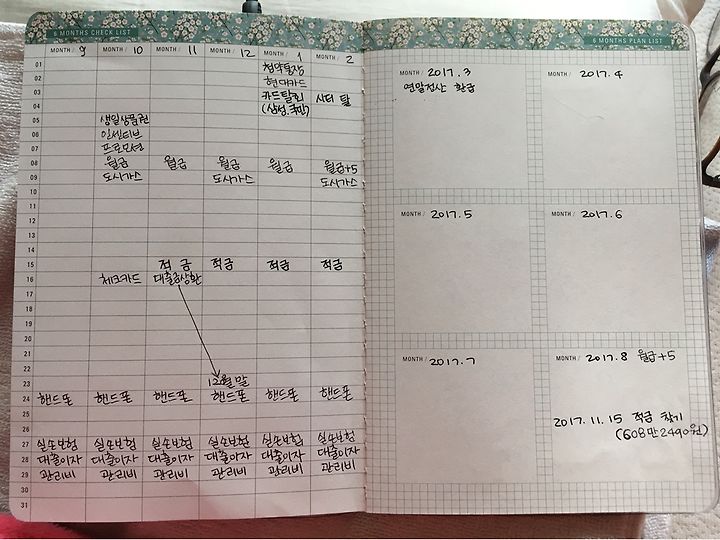 6 MONTHS CHECK LIST
MONTH / 9 MONTH / 10 MONTH / 11 MONTH / 12 MONTH / 1 MONTH / 2
01 청약통장
02 현대카드
03 카드탈회 샤터 탈
04 (삼성.국민)
05 생일상품권
06 인센티브
07 프로모션
08 월급 월급 월급 월급 월급+5
09 도시가스 도시가스 도시가스
10
11
12
13
14
15 적금 적금 적금 적금
16 체크카드 대출금상환
17
18
19
20
21
22
23 12월 말
24 핸드폰 핸드폰 핸드폰 핸드폰 핸드폰 핸드폰
25
26
27 실손보험 실손보험 실손보험 실손보험 실손보험 실손보험
28 대출이자 대출이자 대출이자 대출이자 대출이자 대출이자
29 관리비 관리비 관리비 관리비 관리비 관리비
30
31
6 MONTHS PLAN LIST
MONTH / 2017.3 MONTH / 2017.4
연말정산 환급
MONTH / 2017.5 MONTH / 2017.6
MONTH / 2017.7 MONTH / 2017.8 월급+5
2017.11.15 적금 찾기
(608만2490원)